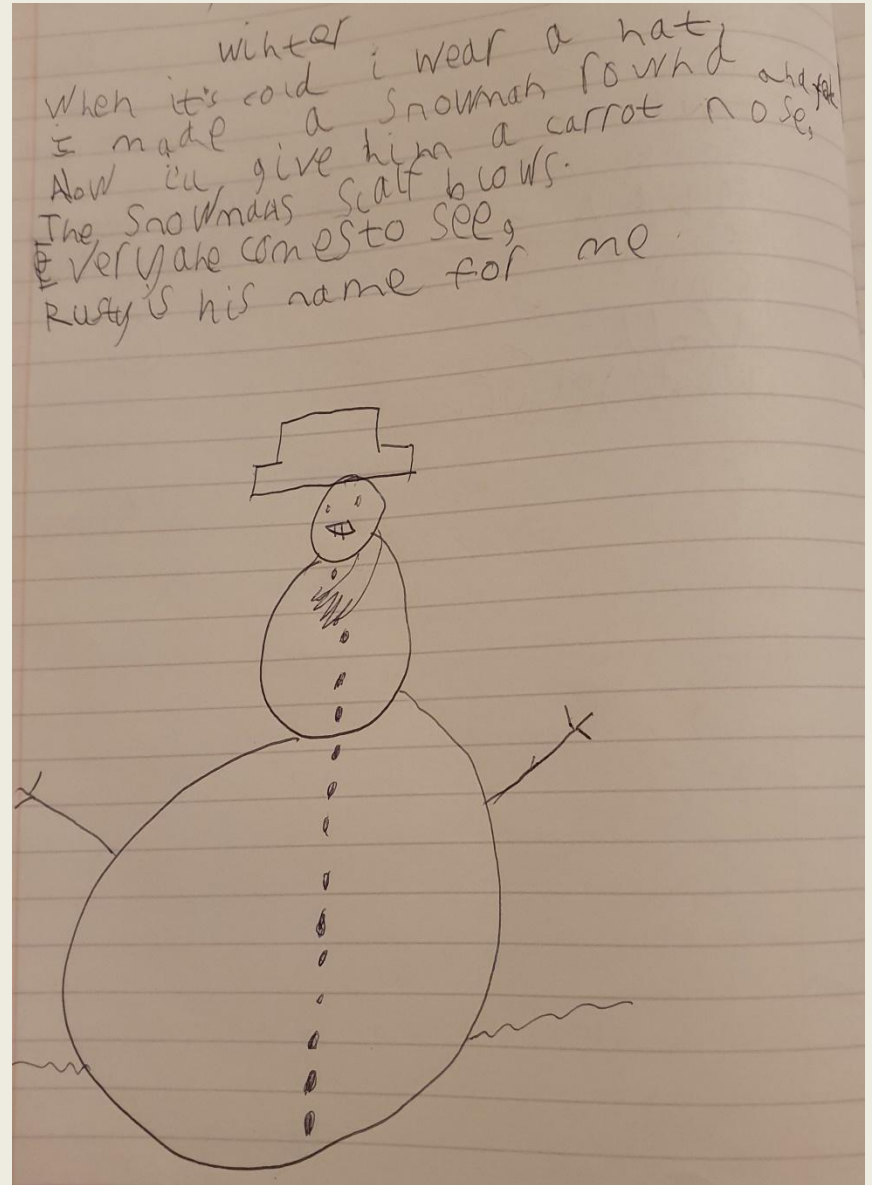 winter
When it's cold i wear a hat,
I made a snowman rownd and fat
Now i'll give him a carrot nose,
The snowmans scalf blows.
Everyone comes to see,
Rusty is his name for me.